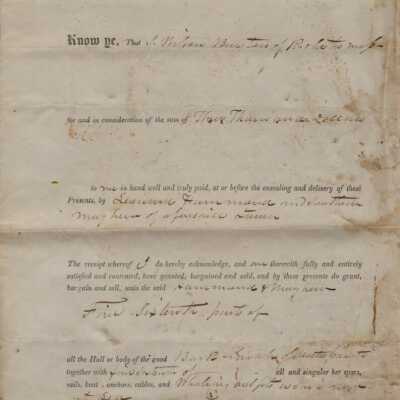 Know ye, That I Wilson Barstow of Rochester Mass
for and in consideration of the sum of Three Thousand Dollars
to me in hand well and truly paid, at or before the ensealing and delivery of these
Presents, by Leonard Hammond and
Mayhew of aforesaid
The receipt whereof I do hereby acknowledge, and am therewith fully and entirely
satisfied and contented, have granted, bargained and sold, and by these presents do grant,
bargain and sell, unto the said Hammond & Mayhew
Five Sixteenth parts of
all the Hull or body of the good Bark
together with of all and singular her spars,
sails, boat, anchors, cables, and Whaling outfit